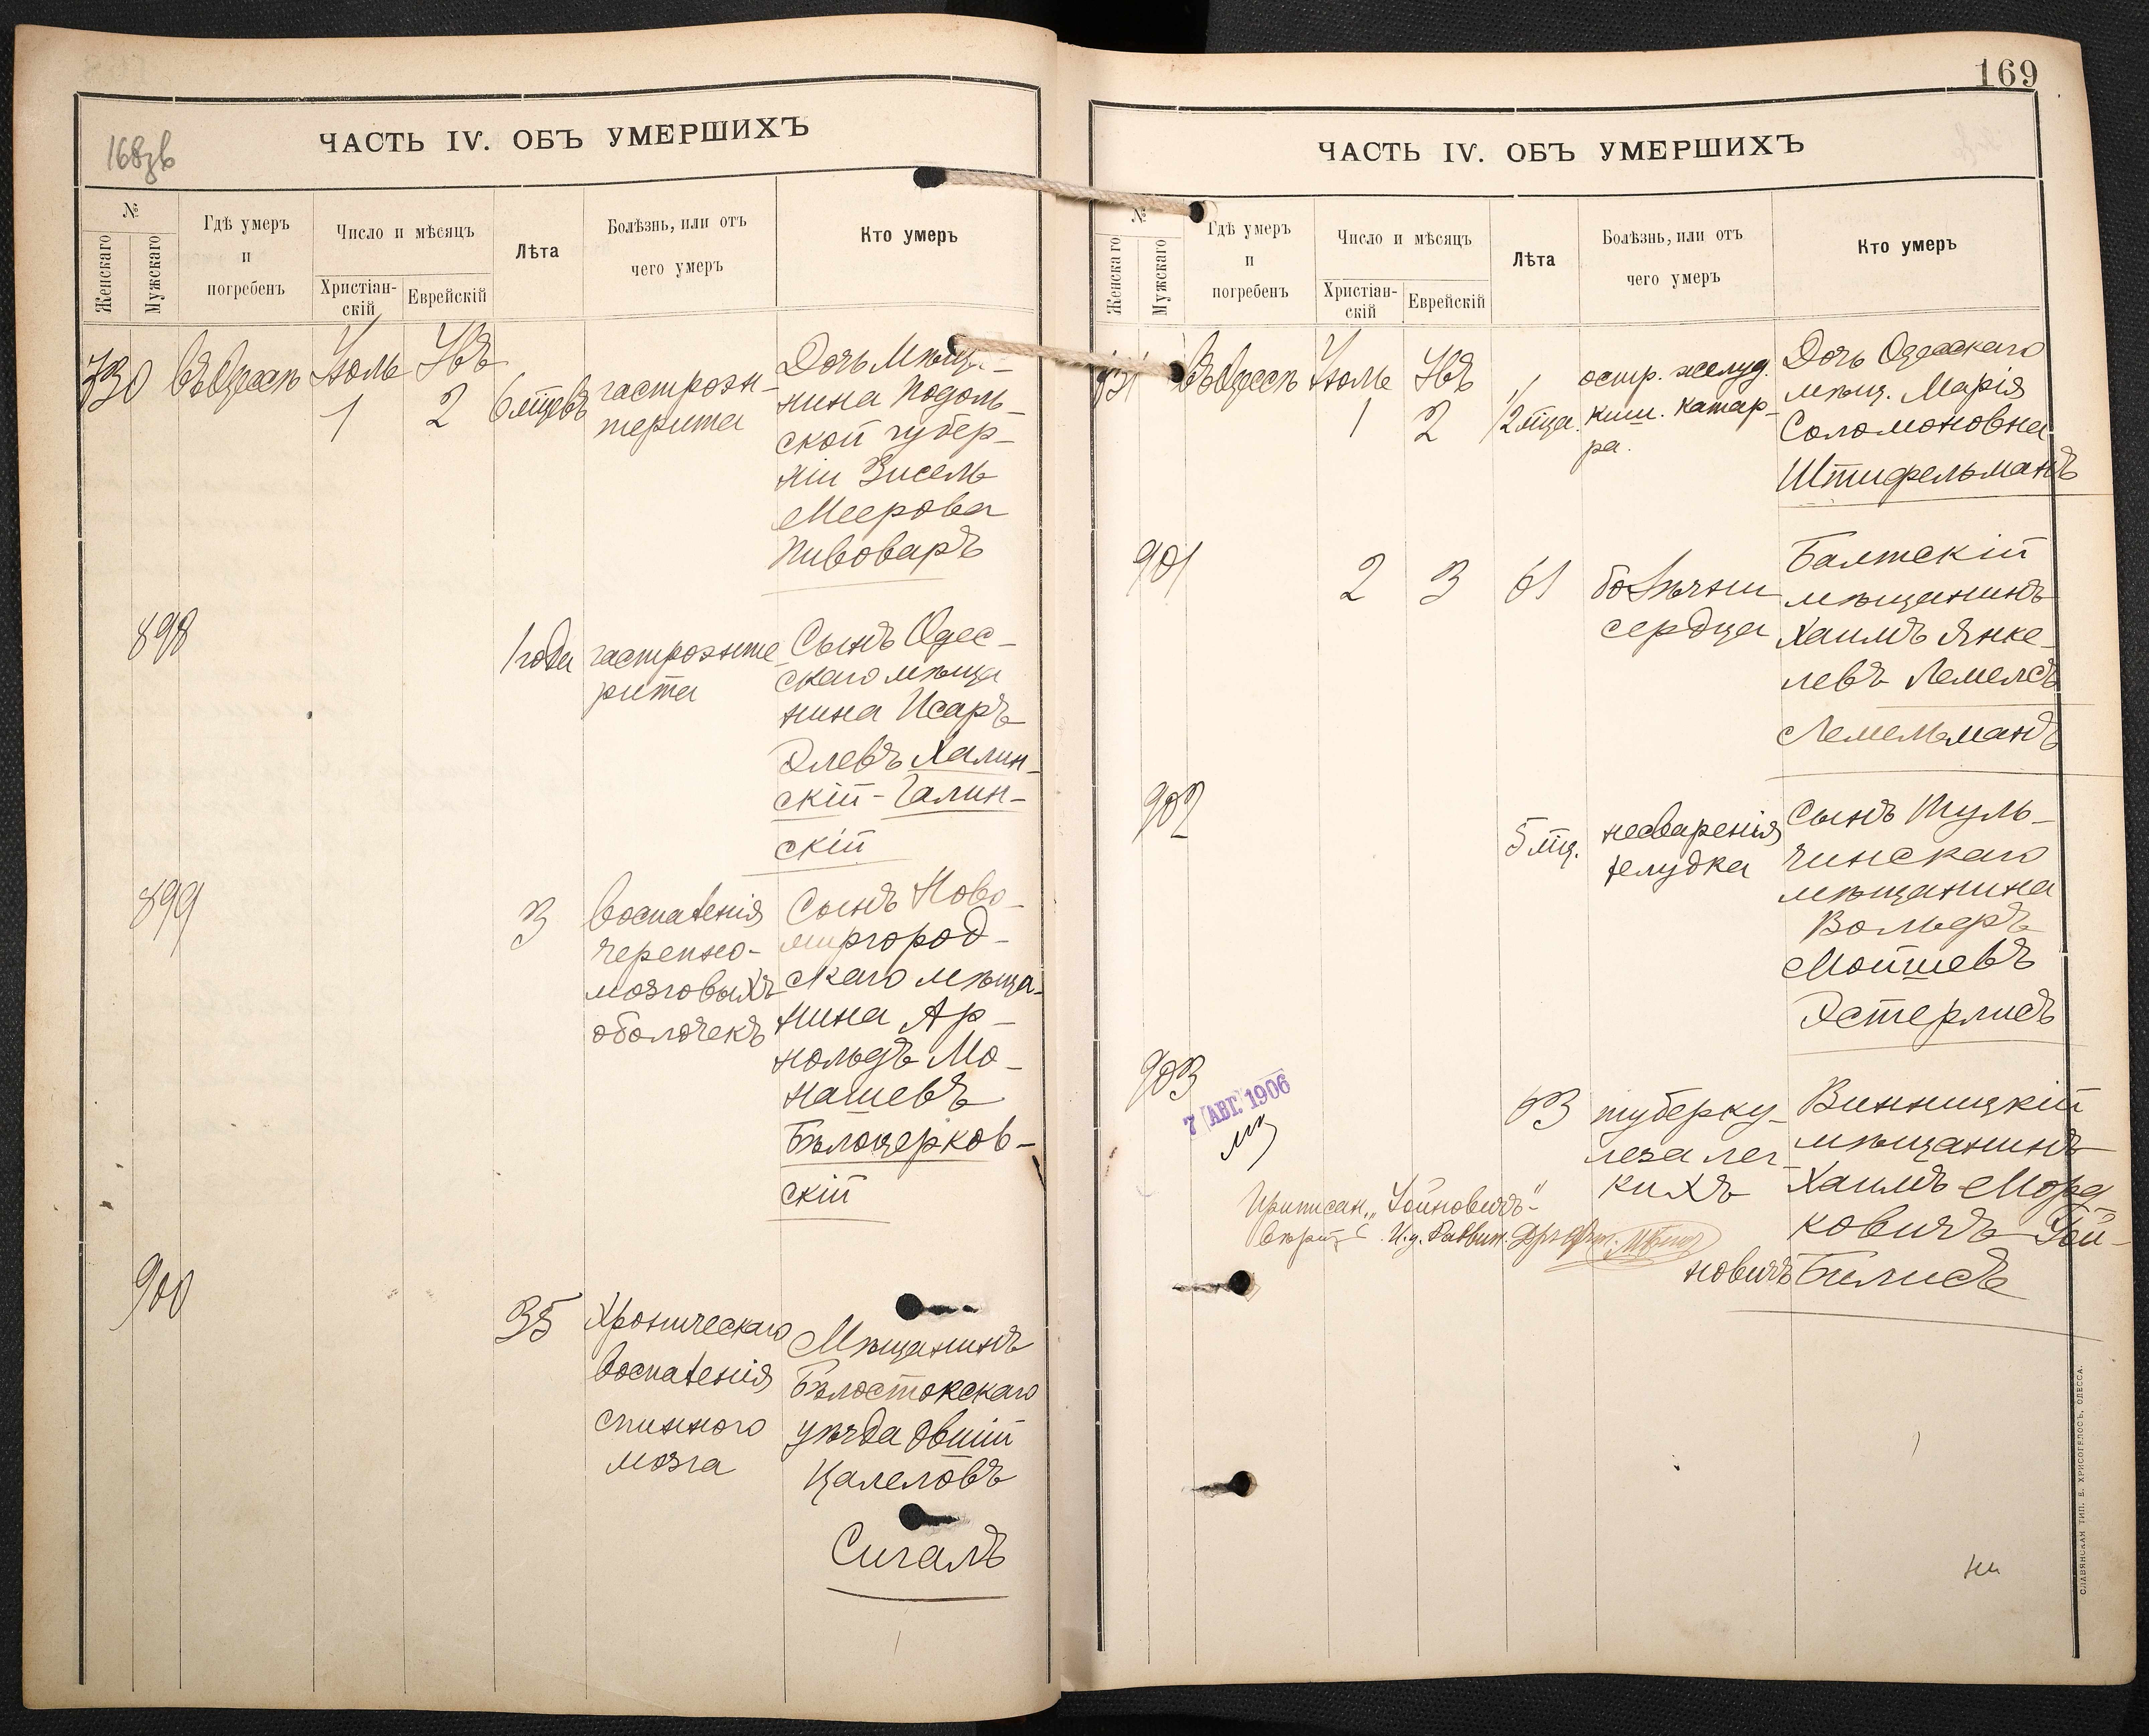 168зв
ЧАСТЬ IV. ОБЪ УМЕРШИХЪ
№
Женскаго
Мужскаго
Гдѣ умеръ
и
погребенъ
Число и мѣсяцъ
Христіан-
скій
Еврейскій
Лѣта
Болѣзнь, или отъ
чего умеръ
Кто умеръ
730
въ Одессѣ
Іюль
1
2
6 мцевъ
гастроэн-
терита
Дочь Мѣща-
нина Подоль-
ской губер-
ніи Зисель
Меерова
Пивоваръ
898
1 года
гастроэнте
рита
Сынъ Одес-
скаго мѣща
нина Исаръ
Элевъ Халин-
скій-Галин-
скій
899
3
воспаленія
черепно-
мозговыхъ
оболочекъ
Сынъ Ново-
миргород-
скаго мѣща-
нина Ар-
нольдъ Мо-
нашевъ
Бѣлоцерков-
скій
900
35
Хроническаго
воспаленія
спинного
мозга
Мѣщанинъ
Бѣлостокскаго
уѣзда Овшій
Цалеловъ
Сигалъ
169
ЧАСТЬ IV. ОБЪ УМЕРШИХЪ
№
Женскаго
Мужскаго
Гдѣ умеръ
и
погребенъ
Число и мѣсяцъ
Христіан-
скій
Еврейскій
Лѣта
Болѣзнь, или отъ
чего умеръ
Кто умеръ
731
въ Одессѣ
Іюль
1
2
1/2 мца
остр. желуд.
киш. катар-
ра.
Дочь Одесскаго
мѣщ. Марія
Соломоновна
Штифельманъ
901
2
3
61
болѣзни
сердца
Балтскій
мѣщанинъ
Хаимъ Янке-
левъ Лемелсъ
Лемельманъ
902
5 мц.
несваренія
желудка
Сынъ Туль-
чинскаго
мѣщанина
Вольеръ
Мойшевъ
Эстерлисъ
903
7 АВГ. 1906
63
туберку-
леза лег-
кихъ
Винницкій
мѣщанинъ
Хаимъ Морд
ковичъ Гой-
новичъ Билисъ
Приписан. „Гойновичъ"
СЛАВЯНСКАЯ ТИП. Е. ХРИСОГЕЛОСЪ, ОДЕССА.